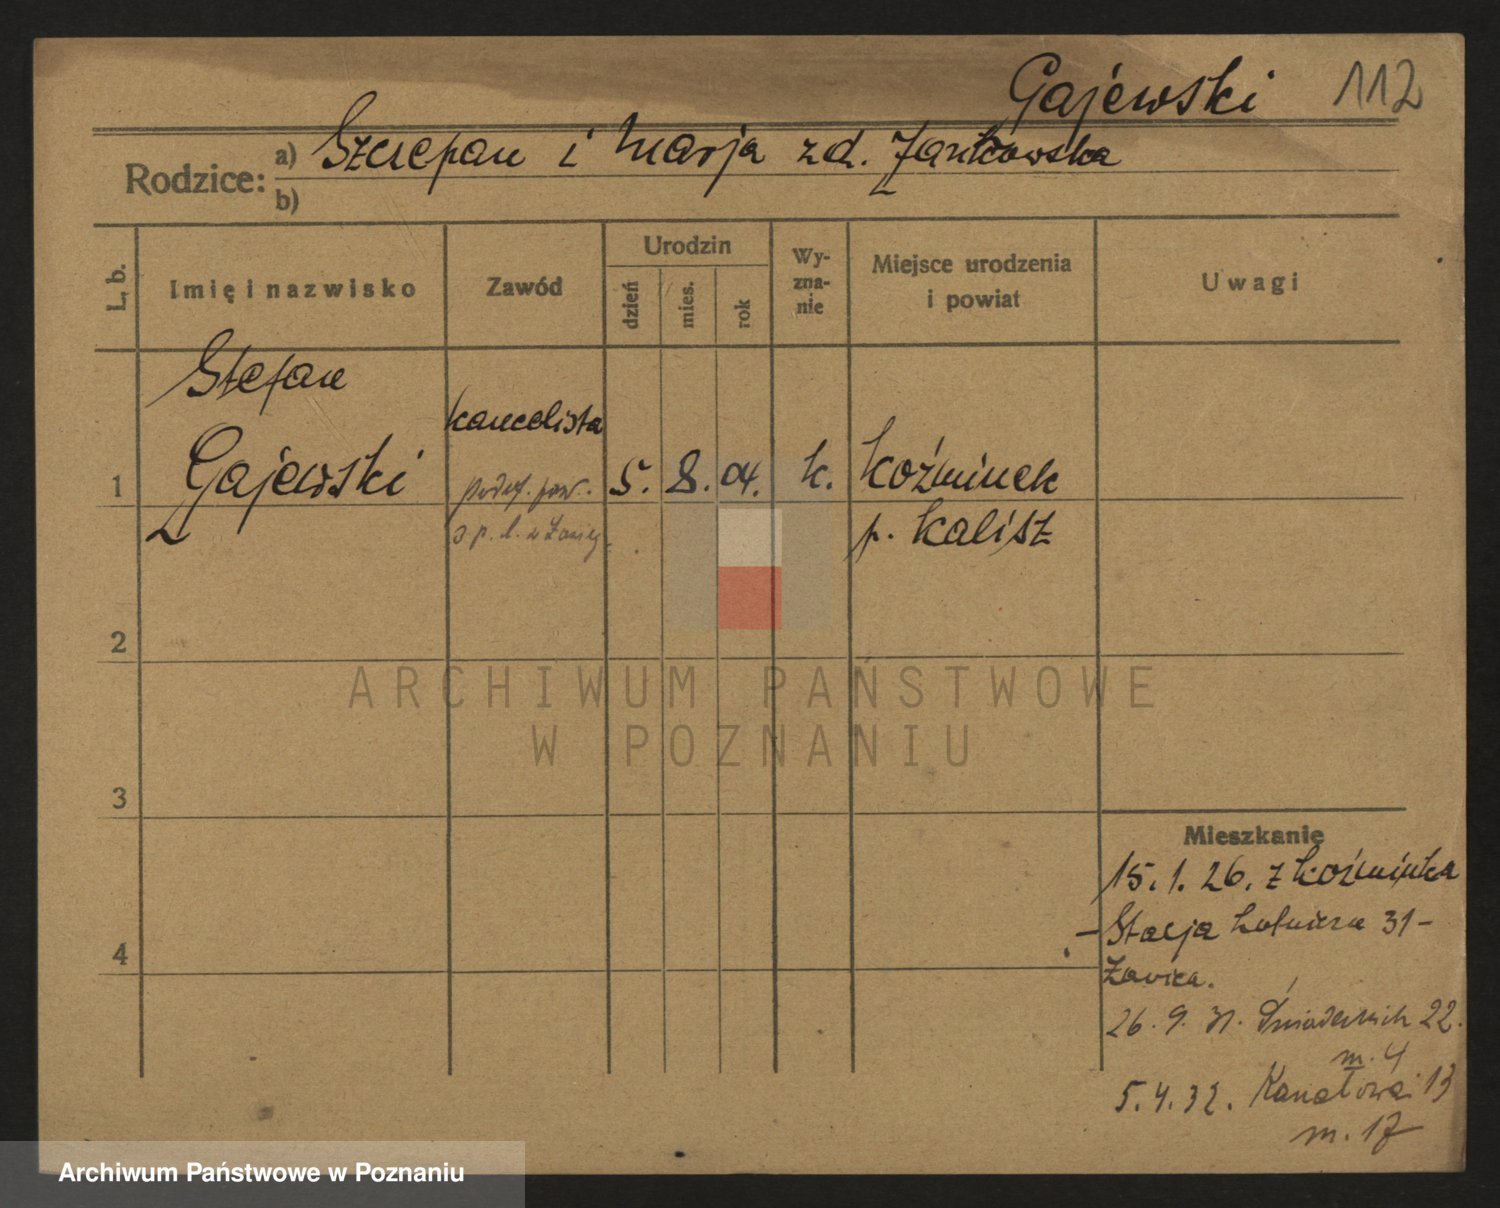 Gajewski 112
Rodzice: a) Szczepan i Marja zd. Jankowska
b)
L. b. Imię i nazwisko Zawód Urodzin Wyznanie Miejsce urodzenia Uwagi
dzień mies. rok i powiat
Stefan
kancelista
1 Gajewski 5. 8. 04. k. Koźminek
p. Kalisz
2
ARCHIWUM PAŃSTWOWE
W POZNANIU
3
Mieszkanie
15. 1. 26. z Koźminka
4 - Stacja 31 -
Ławica.
26. 9. 31. Śniadeckich 22.
m. 4
5. 4. 32. Kanałowa 13
m. 17
Archiwum Państwowe w Poznaniu